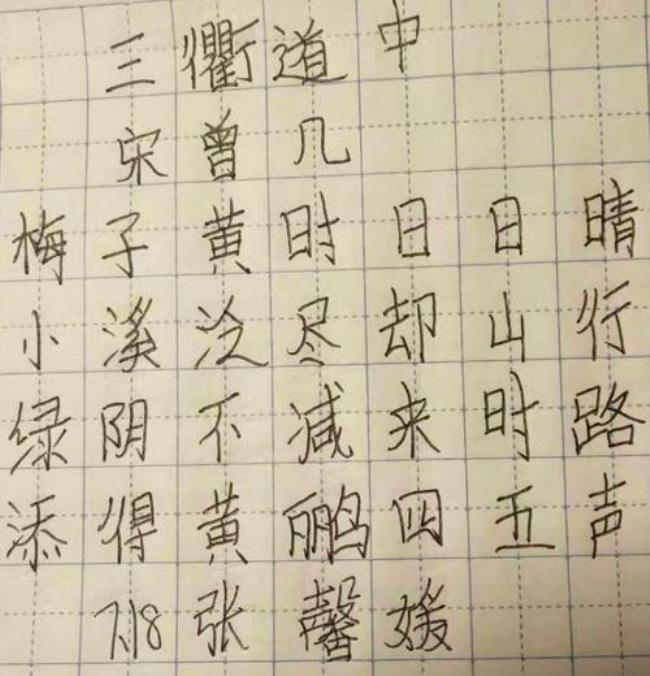 三衢道中
宋曾几
梅子黄时日日晴
小溪泛尽却山行
绿阴不减来时路
添得黄鹂四五声
7.18张馨媛